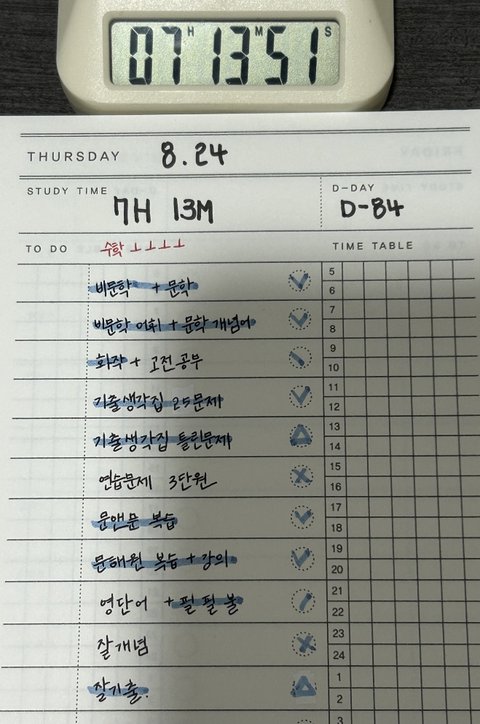 07H 13M 51S
THURSDAY 8.24
STUDY TIME D-DAY
7H 13M D-84
TO DO 수학 ㅗㅗㅗㅗ TIME TABLE
비문학 + 문학
비문학 어휘 + 문학 개념어
화작 + 고전공부
기출생각집 25문제
기출생각집 틀린문제
연습문제 3단원
문앤문 복습
문해원 복습 + 강의
영단어 + 필 필 불
잘개념
잘기출.
5
6
7
8
9
10
11
12
13
14
15
16
17
18
19
20
21
22
23
24
1
2
3